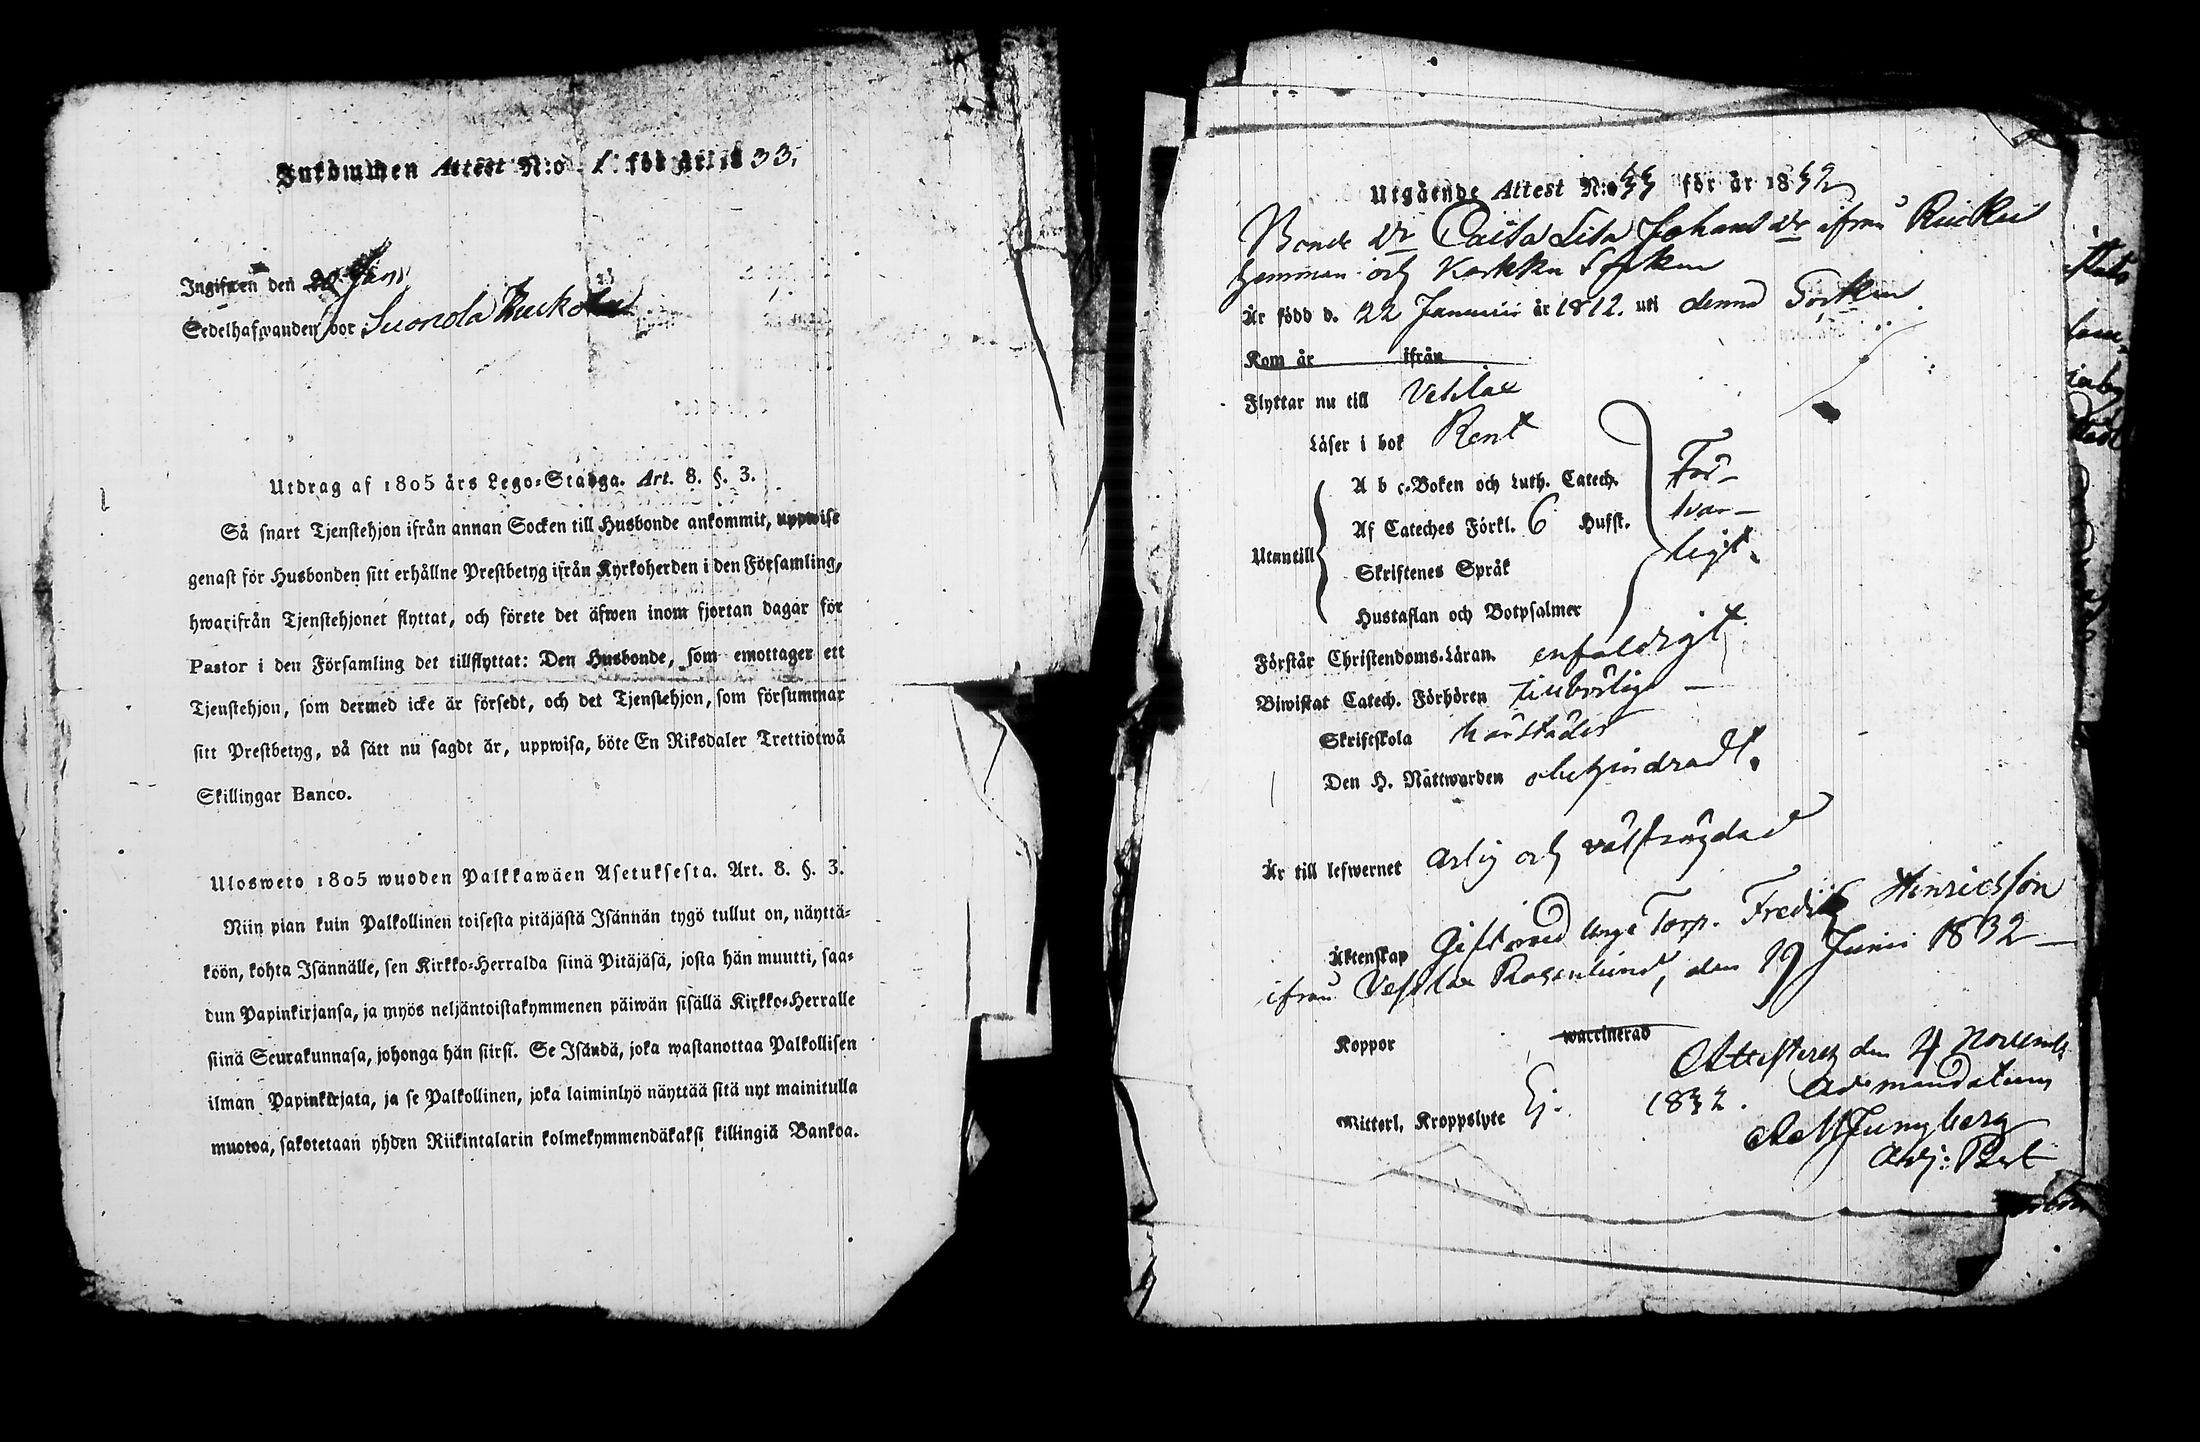 Inkommen Attest N:o 1. för år 1833.
Ingifwen den 20 Jan
Sedelhafwanden bor Suonola Ruckola
Utdrag af 1805 års Lego-Stadga. Art. 8. §. 3.
Så snart Tjenstehjon ifrån annan Socken till Husbonde ankommit, uppwise
genast för Husbonden sitt erhållne Prestbetyg ifrån Kyrkoherden i den Församling,
hwarifrån Tjenstehjonet flyttat, och förete det äfwen inom fjortan dagar för
Pastor i den Församling det tillflyttat: Den Husbonde, som emottager ett
Tjenstehjon, som dermed icke är försedt, och det Tjenstehjon, som försummar
sitt Prestbetyg, på sätt nu sagdt är, uppwisa, böte En Riksdaler Trettiotwå
Skillingar Banco.
Ulosweto 1805 wuoden Palkkawäen Asetuksesta. Art. 8. §. 3.
Niin pian kuin Palkollinen toisesta pitäjästä Isännän tygö tullut on, näyttä-
köön, kohta Isännälle, sen Kirkko-Herralda siinä Pitäjäsä, josta hän muutti, saa-
dun Papinkirjansa, ja myös neljäntoistakymmenen päiwän sisällä Kirkko-Herralle
siinä Seurakunnasa, johonga hän siirsi. Se Isändä, joka wastanottaa Palkollisen
ilman Papinkirjata, ja se Palkollinen, joka laiminlyö näyttää sitä nyt mainitulla
muotoa, sakotetaan yhden Riikintalarin kolmekymmendäkaksi killingiä Bankoa.
Utgående Attest N:o 33 för år 1832
Bonde Dr Caisa Lisa Johans dr ifrån Ruckus
hemman och Karkku Socken
Är född d. 22 Januarii år 1812. uti denna Socken
Kom år ifrån
Flyttar nu till Vesilax
Läser i bok Rent
Utantill
A b c-Boken och Luth. Catech.
Af Cateches Förkl. 6 Hufst.
Skriftenes Språk
Hustaflan och Botpsalmer
För-
svar-
ligt.
Förstår Christendoms-Läran. enfaldigt
Biwistat Catech. Förhören tillbörligt
Skriftskola
Den H. Nattwarden obehindradt.
Är till lefwernet ärlig och välfrägdad
Äktenskap Gift med unge Torp. Fredrik Hinricsson
ifrån Vesilax Rosenlund, den 19 Junii 1832
Koppor waccinerad
Witterl. Kroppslyte Ej.
Attesterar den 4 Novemb.
1832. Ad mandatum
Ljungberg
Adj: Past